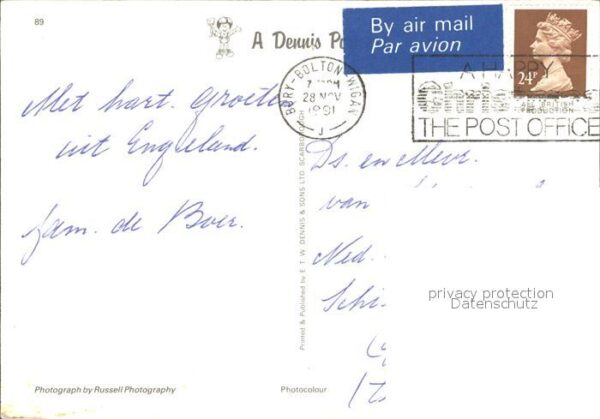 89
A Dennis Po
By air mail
Par avion
24P
BURY-BOLTON-WIGAN
28 NOV
1991
J
A HAPPY
ALL BRITISH
PRODUCTION
THE POST OFFICE
Met hart. Groeten
uit Engeland.
fam. de Boer.
Ds. en Mevr.
van
Ned.
Schi
Printed & Published by E. T. W. DENNIS & SONS LTD. SCARBOROUGH
privacy protection
Datenschutz
Photograph by Russell Photography
Photocolour